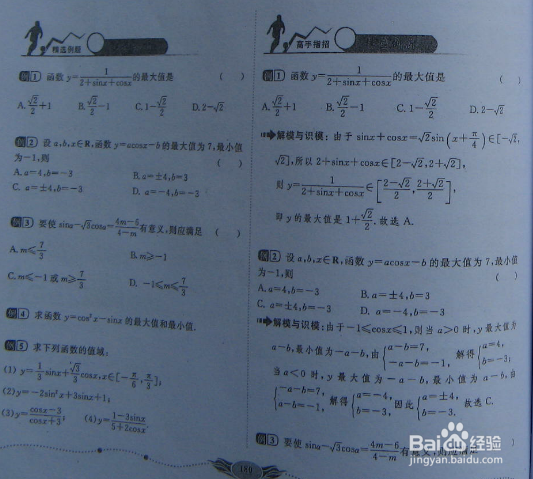 精选例题
例1 函数 y=1/(2+sinx+cosx) 的最大值是 ( )
A. √2/2+1 B. √2/2-1 C. 1-√2/2 D. 2-√2
例2 设 a,b,x∈R,函数 y=acosx-b 的最大值为 7,最小值
为-1,则 ( )
A. a=4,b=-3 B. a=±4,b=3
C. a=±4,b=-3 D. a=-4,b=-3
例3 要使 sinα-√3cosα=(4m-6)/(4-m) 有意义,则应满足 ( )
A. m≤7/3 B. m≥-1
C. m≤-1 或 m≥7/3 D. -1≤m≤7/3
例4 求函数 y=cos²x-sinx 的最大值和最小值.
例5 求下列函数的值域:
(1) y=1/3 sinx+√3/3 cosx,x∈[-π/6,π/3];
(2) y=-2sin²x+3sinx+1;
(3) y=(cosx-3)/(cosx+3); (4) y=(1-3sinx)/(5+2cosx)
高手指招
例1 函数 y=1/(2+sinx+cosx) 的最大值是 ( )
A. √2/2+1 B. √2/2-1 C. 1-√2/2 D. 2-√2
解模与识模:由于 sinx+cosx=√2sin(x+π/4)∈[-√2,
√2],所以 2+sinx+cosx∈[2-√2,2+√2],
则 y=1/(2+sinx+cosx)∈[(2-√2)/2,(2+√2)/2],
即 y 的最大值是 1+√2/2.故选 A.
例2 设 a,b,x∈R,函数 y=acosx-b 的最大值为 7,最小值
为-1,则 ( )
A. a=4,b=-3 B. a=±4,b=3
C. a=±4,b=-3 D. a=-4,b=-3
解模与识模:由于-1≤cosx≤1,则当 a>0 时,y 最大值为
a-b,最小值为-a-b,由{a-b=7,-a-b=-1, 解得{a=4,b=-3;
当 a<0 时,y 最大值为-a-b,最小值为 a-b,由
{-a-b=7,a-b=-1, 解得{a=-4,b=-3, 因此{a=±4,b=-3. 故选 C.
例3 要使 sinα-√3cosα=(4m-6)/(4-m) 有意义,则应满足 )
180
Baidu经验
jingyan.baidu.com